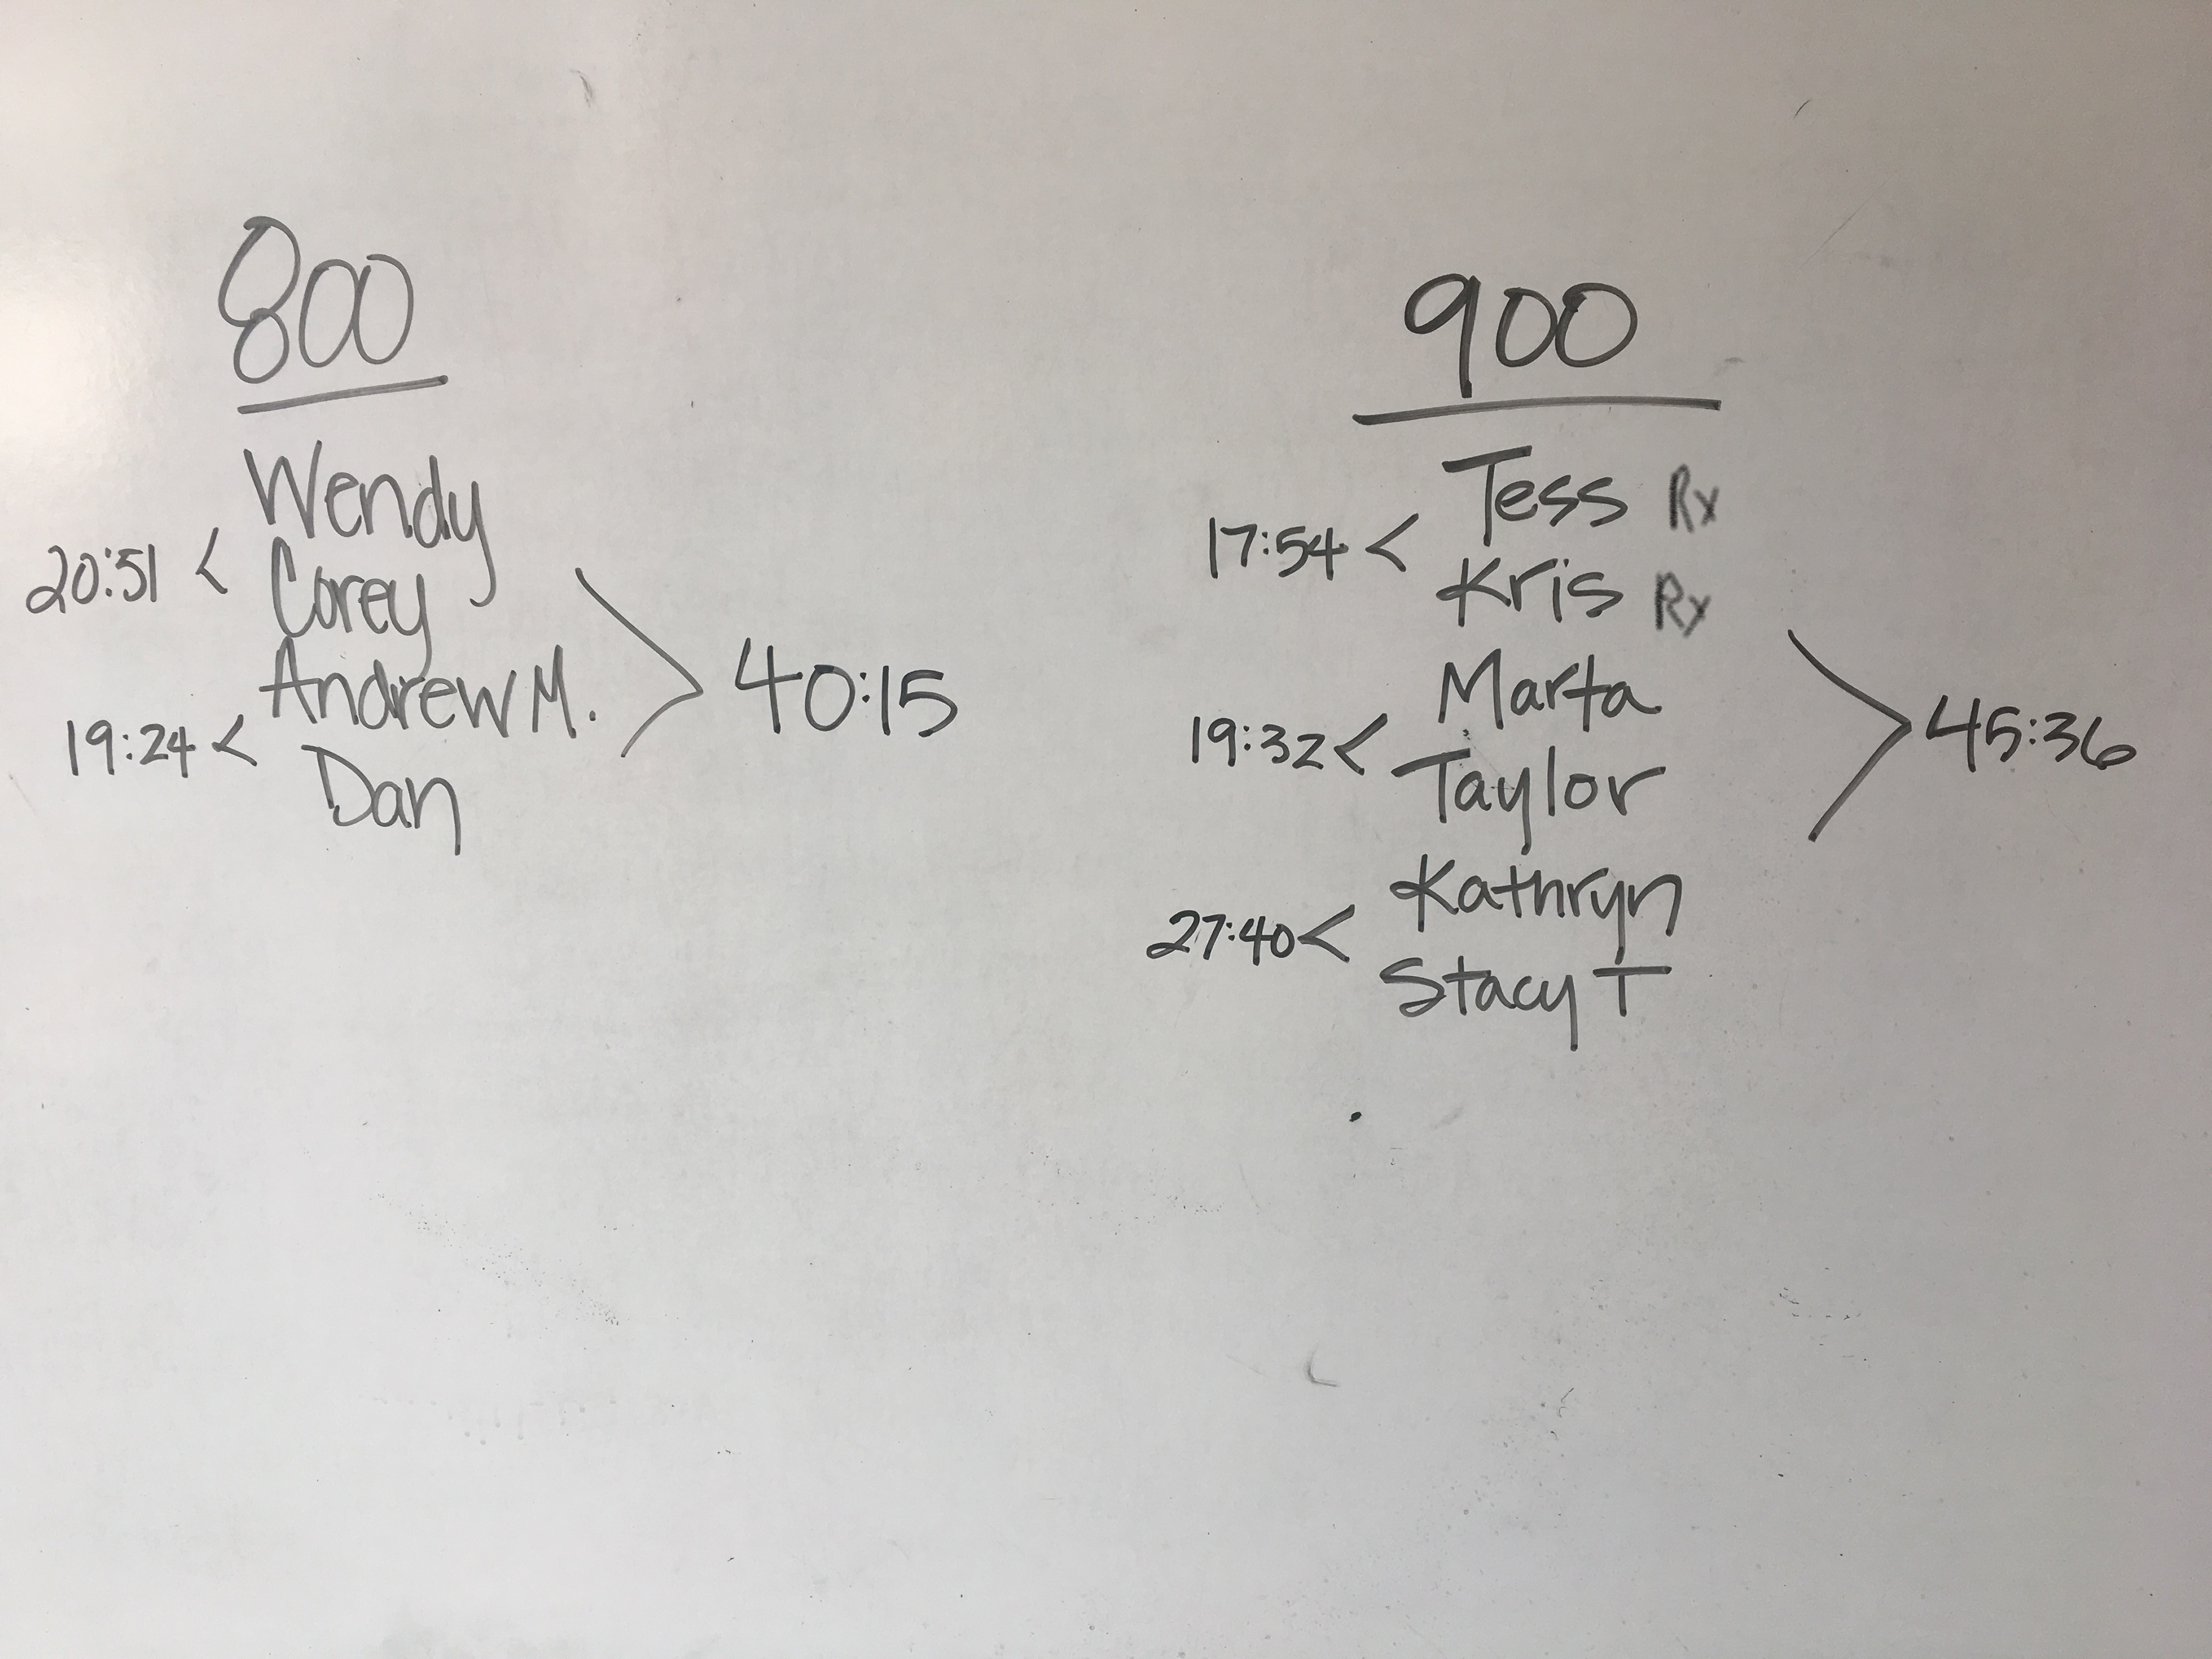 800
Wendy
20:51 < Corey
Andrew M. > 40:15
19:24 < Dan
900
Tess Rx
17:54 < Kris Rx
Marta
19:32 < Taylor > 45:36
Kathryn
27:40 < Stacy T